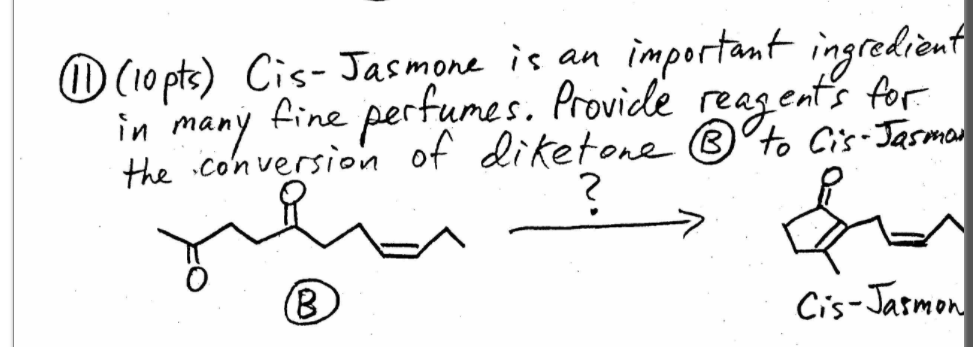 ⑪ (10 pts) Cis-Jasmone is an important ingredient
in many fine perfumes. Provide reagents for
the conversion of diketone Ⓑ to Cis-Jasmon
?
O
O
O
Ⓑ
Cis-Jasmon